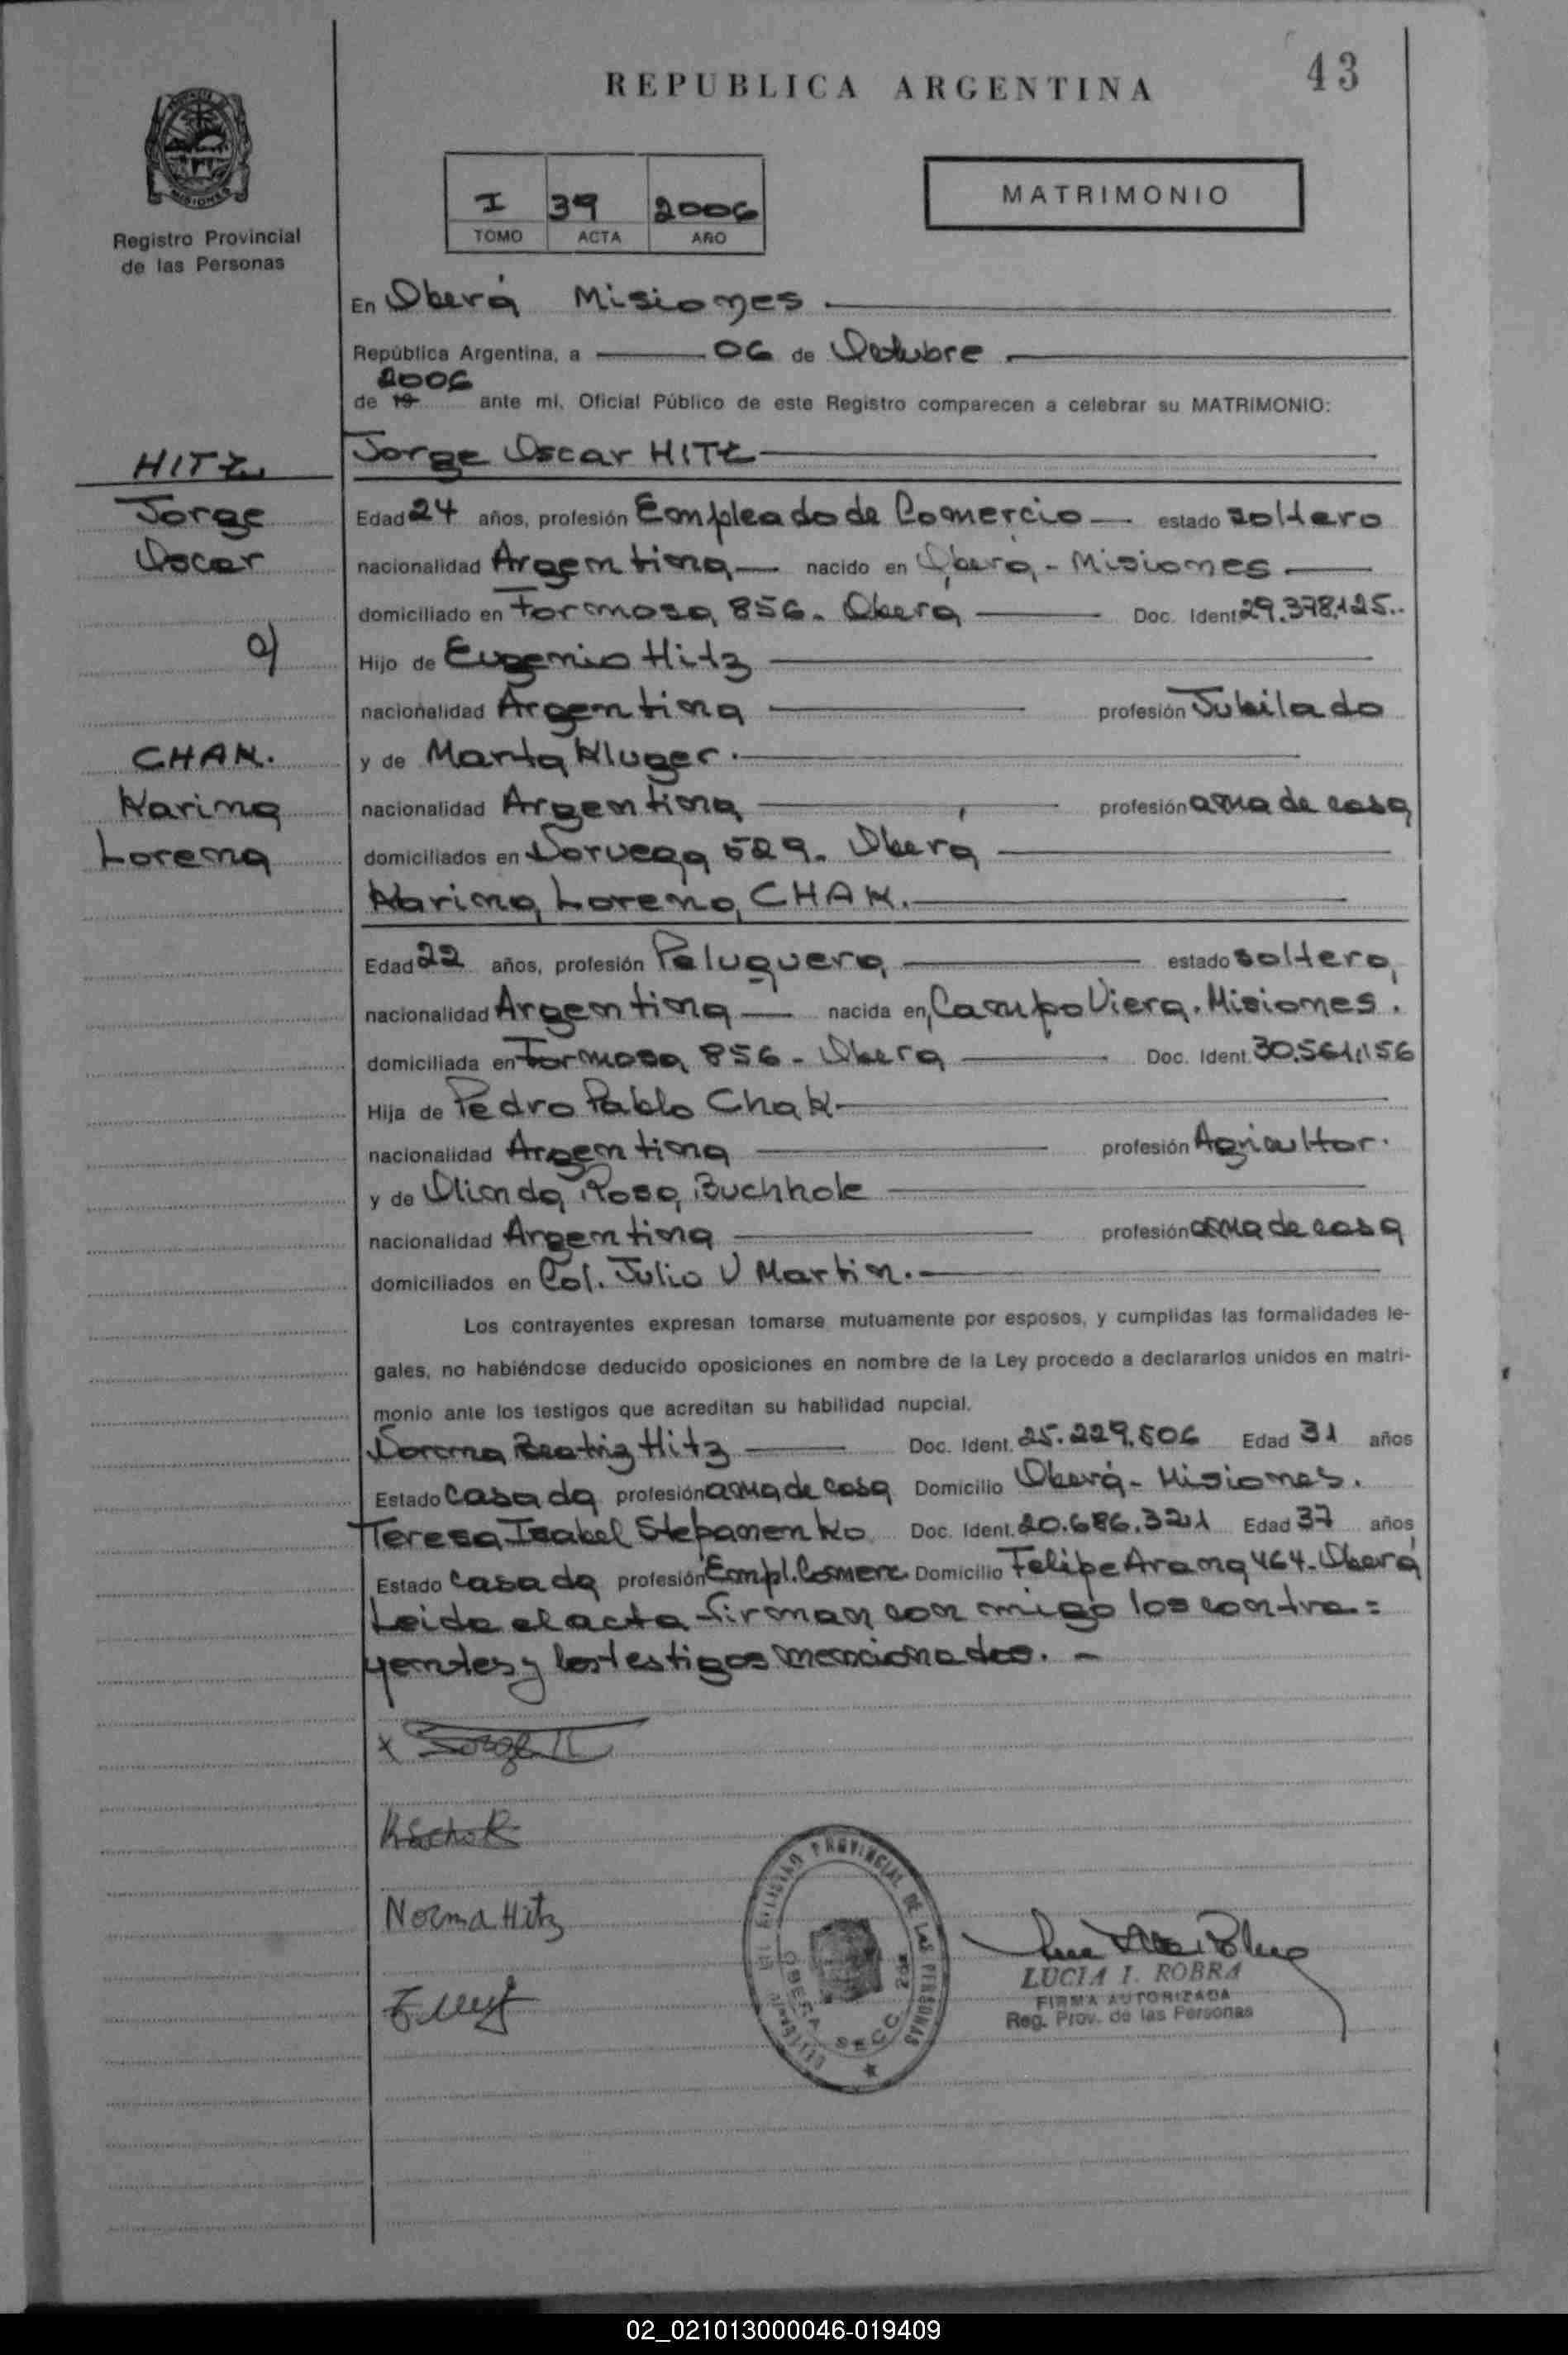 43
REPUBLICA ARGENTINA
I 39 2006
TOMO ACTA AÑO
MATRIMONIO
Registro Provincial
de las Personas
En Oberá Misiones
República Argentina, a 06 de Octubre
2006
de 19 ante mí, Oficial Público de este Registro comparecen a celebrar su MATRIMONIO:
HITZ
Jorge
Oscar
c/
CHAK.
Karina
Lorena
Jorge Oscar HITZ
Edad 24 años, profesión Empleado de Comercio estado soltero
nacionalidad Argentina nacido en Oberá - Misiones
domiciliado en Formosa 856. Oberá Doc. Ident 29.378.125..
Hijo de Eugenio Hitz
nacionalidad Argentina profesión Jubilado
y de Marta Kluger.
nacionalidad Argentina profesión ama de casa
domiciliados en Noruega 529. Oberá
Karina Lorena CHAK.
Edad 22 años, profesión Peluquera estado soltera
nacionalidad Argentina nacida en Campo Viera. Misiones.
domiciliada en Formosa 856 - Oberá Doc. Ident. 30.561.156
Hija de Pedro Pablo Chak
nacionalidad Argentina profesión Agricultor.
y de Olinda Rosa Buchhole
nacionalidad Argentina profesión ama de casa
domiciliados en Col. Julio U Martin.
Los contrayentes expresan tomarse mutuamente por esposos, y cumplidas las formalidades le-
gales, no habiéndose deducido oposiciones en nombre de la Ley procedo a declararlos unidos en matri-
monio ante los testigos que acreditan su habilidad nupcial.
Norma Beatriz Hitz Doc. Ident. 25.229.506 Edad 31 años
Estado casada profesión ama de casa Domicilio Oberá - Misiones.
Teresa Isabel Stepanenko Doc. Ident. 20.686.321 Edad 37 años
Estado casada profesión Empl. Comerc Domicilio Felipe Arana 464. Oberá
Leida el acta firman con migo los contra=
yentes y los testigos mencionados. -
x Jorge
Norma Hitz
REGISTRO PROVINCIAL DE LAS PERSONAS
OBERA SECC 2da
MISIONES
LUCIA I. ROBRA
FIRMA AUTORIZADA
Reg. Prov. de las Personas
02_021013000046-019409